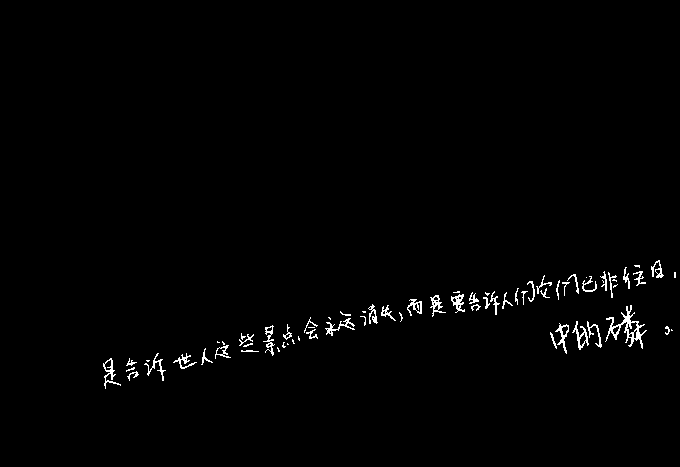 是告诉世人这些景点会永远消失,而是要告诉人们它们已非往日,
中的磷。